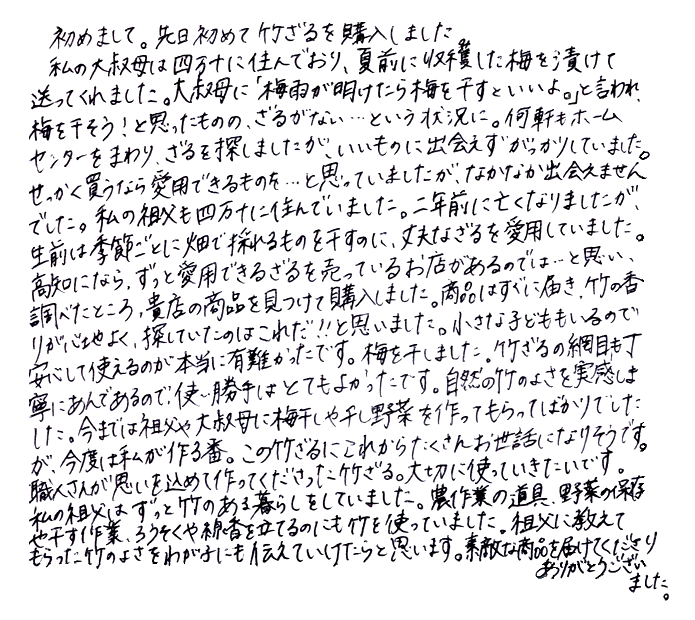 初めまして。先日初めて竹ざるを購入しました
私の大叔母は四万十に住んでおり、夏前に収穫した梅を漬けて
送ってくれました。大叔母に「梅雨が明けたら梅を干すといいよ。」と言われ、
梅を干そう！と思ったものの、ざるがない…という状況に。何軒もホーム
センターをまわり、ざるを探しましたが、いいものに出会えずがっかりしていました。
せっかく買うなら愛用できるものを…と思っていましたが、なかなか出会えません
でした。私の祖父も四万十に住んでいました。二年前に亡くなりましたが、
生前は季節ごとに畑で採れるものを干すのに、丈夫なざるを愛用していました。
高知になら、ずっと愛用できるざるを売っているお店があるのでは…と思い、
調べたところ、貴店の商品を見つけて購入しました。商品はすぐに届き、竹の香
りが心地よく、探していたのはこれだ!!と思いました。小さな子どももいるので
安心して使えるのが本当に有難かったです。梅を干しました。竹ざるの網目も丁
寧にあんであるので、使い勝手はとてもよかったです。自然の竹のよさを実感しま
した。今までは祖父や大叔母に梅干しや干し野菜を作ってもらってばかりでした
が、今度は私が作る番。この竹ざるにこれからたくさんお世話になりそうです。
職人さんが思いを込めて作ってくださった竹ざる。大切に使っていきたいです。
私の祖父はずっと竹のある暮らしをしていました。農作業の道具、野菜の保存
や干す作業、ろうそくや線香を立てるのにも竹を使っていました。祖父に教えて
もらった竹のよさをわが子にも伝えていけたらと思います。素敵な商品を届けてくださり
ありがとうござい
ました。